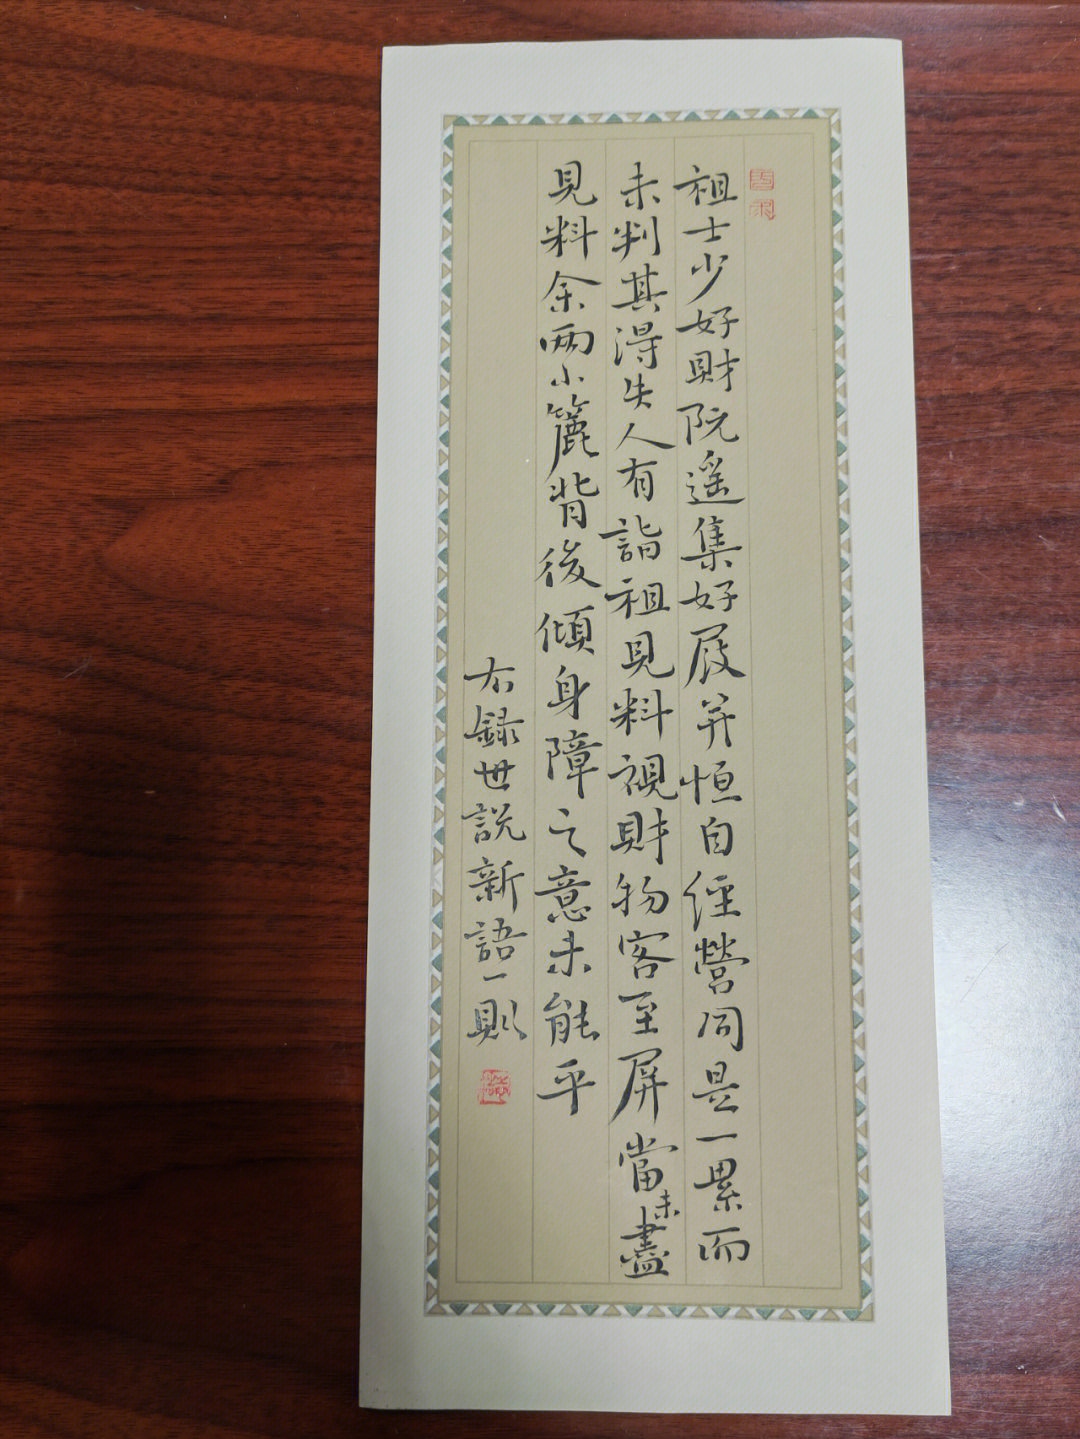 祖士少好財阮遥集好屐并恒自經營同是一累而
未判其得失人有詣祖見料視財物客至屏當未盡
見料余兩小簏背後傾身障之意未能平
右録世説新語一則